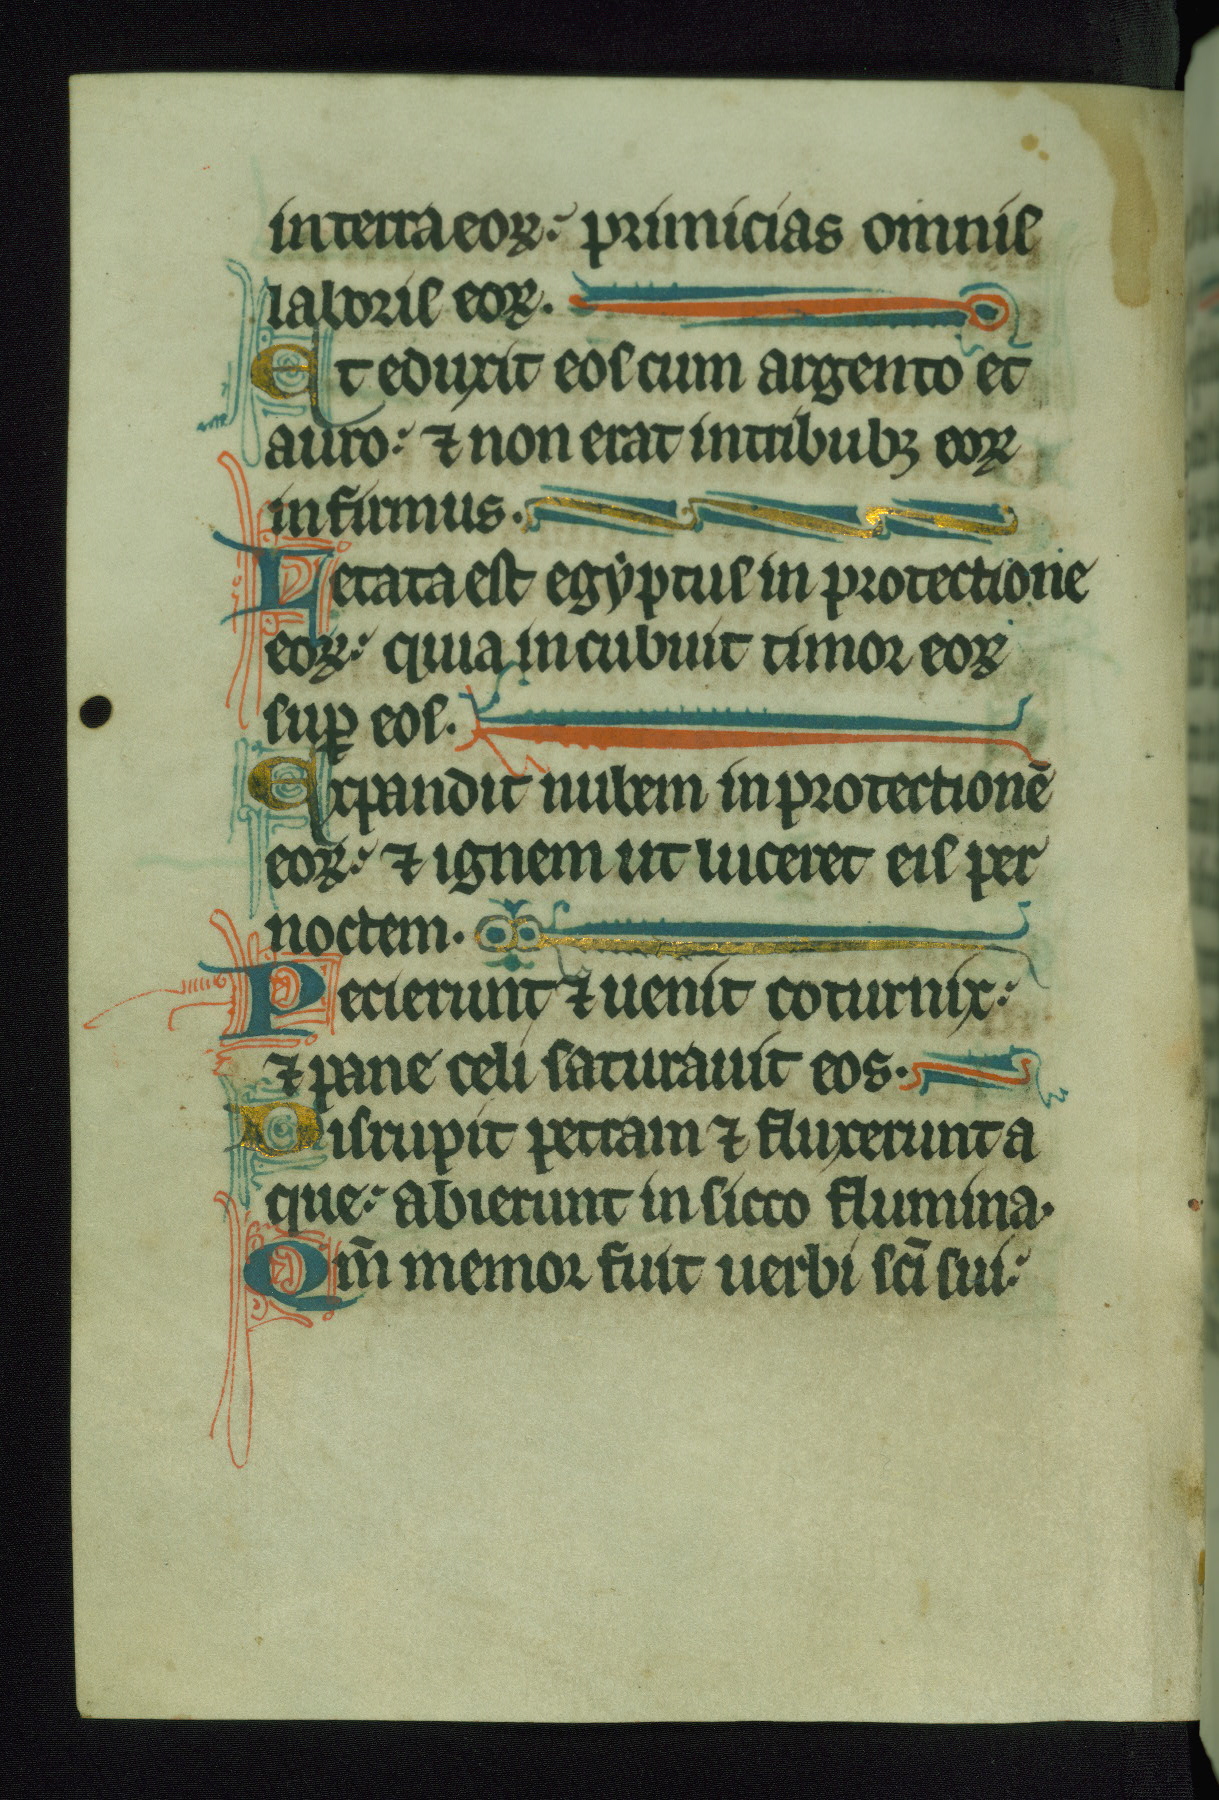 in terra eoꝝ: primicias omnis
laboris eoꝝ.
Et eduxit eos cum argento et
auro: ⁊ non erat in tribubꝫ eoꝝ
infirmus.
Letata est egẏptus in protectione
eoꝝ: quia incubuit timor eoꝝ
suꝑ eos.
Expandit nubem in protectionē
eoꝝ: ⁊ ignem ut luceret eis per
noctem.
Pecierunt ⁊ uenit coturnix:
⁊ pane celi saturauit eos.
Disrupit petram ⁊ fluxerunt a
que: abierunt in sicco flumina.
Qm̄ memor fuit uerbi sc̄i sui: